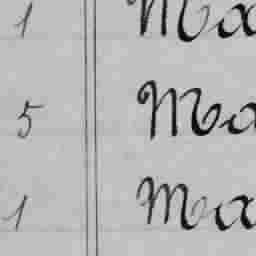 1 Ma
5 Ma
1 Ma